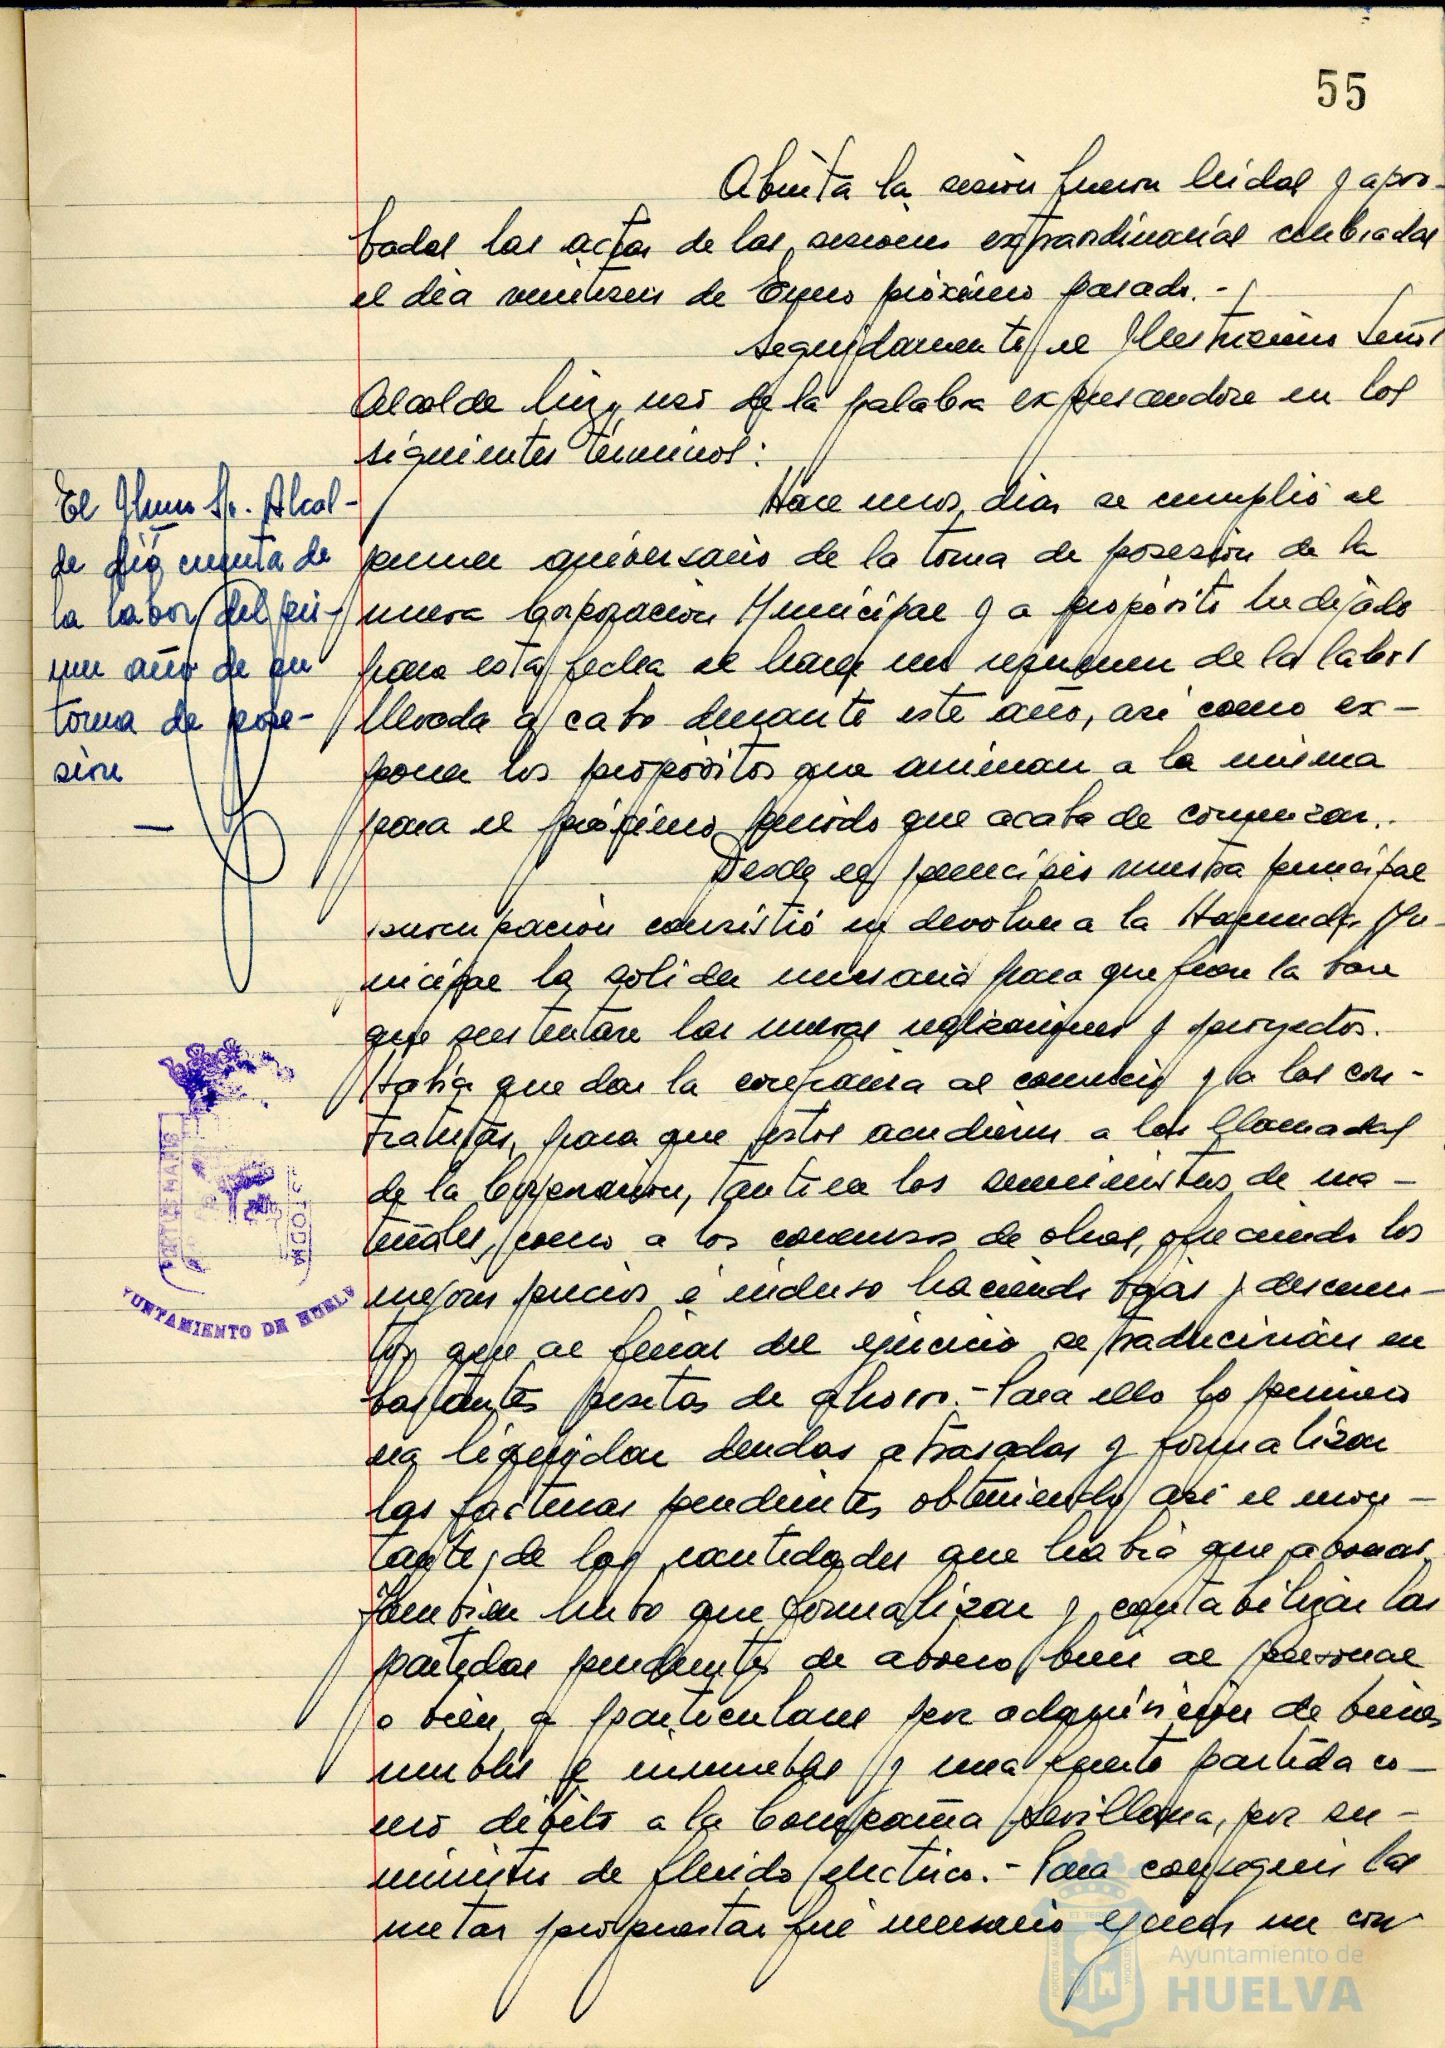 55
Abierta la sesión fueron leidas y apro-
badas las actas de las sesiones extraordinarias celebradas
el dia veintiseis de Enero próximo pasado.-
Seguidamente el Ilustrísimo Señor
Alcalde hizo uso de la palabra expresandose en los
siguientes términos:
Hace unos dias se cumplió el
primer aniversario de la toma de posesión de la
nueva Corporación Municipal y a propósito he dejado
para esta fecha el hacer un resumen de la labor
llevada a cabo durante este año, asi como ex-
poner los propósitos que animan a la misma
para el próximo periodo que acaba de comenzar.
Desde el principio nuestra principal
preocupación consistió en devolver a la Hacienda Mu-
nicipal la solidez necesaria para que fuera la base
que sustentara las nuevas realizaciones y proyectos.
Habia que dar la confianza al comercio y a los con-
tratistas, para que estos acudieran a las llamadas
de la Corporación, tanto en los suministros de ma-
teriales, como a los concursos de obras, ofreciendo los
mejores precios e incluso haciendo bajas y descuen-
tos que al final del ejercicio se traducirian en
bastantes pesetas de ahorro.- Para ello lo primero
era liquidar deudas atrasadas y formalizar
las facturas pendientes obteniendo asi el mon-
tante de las cantidades que habia que abonar.
Tambien hubo que formalizar y contabilizar las
partidas pendientes de abono bien al personal
o bien a particulares por adquisición de bienes
muebles e inmuebles y una fuerte partida co-
mo débito a la Compañia Sevillana, por su-
ministro de fluido electrico.- Para conseguir las
metas propuestas fué necesario ejercer un con-
El Iltmo Sr. Alcal-
de dió cuenta de
la labor del pri-
mer año de su
toma de pose-
sión
PORTUS MARIS
CUSTODIA
AYUNTAMIENTO DE HUELVA
Ayuntamiento de
HUELVA